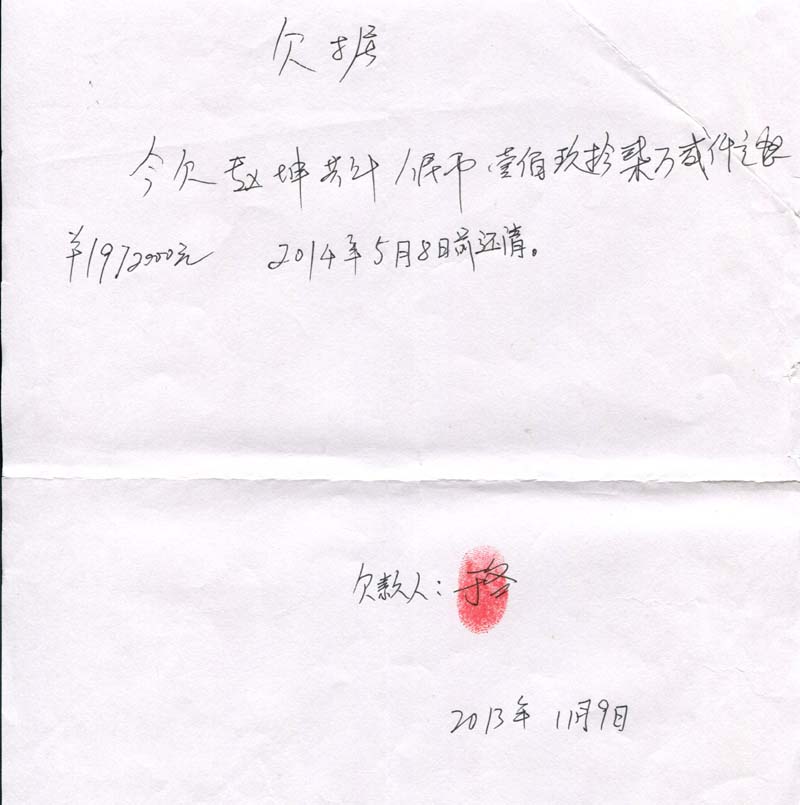 欠据
今欠赵坤共计人民币壹佰玖拾柒万贰仟元整
￥1972000元 2014年5月8日前还清。
欠款人：于
2013年11月9日